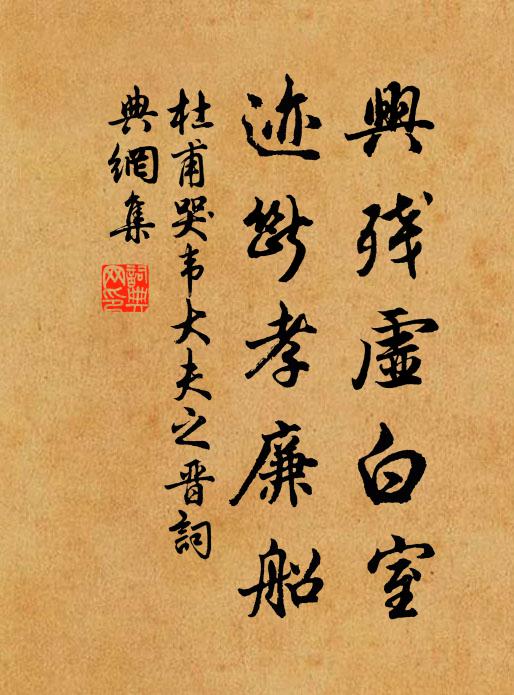 興残虛白室
迹斷孝廉船
杜甫哭韦大夫之晋詞
典網集
詞典
网印